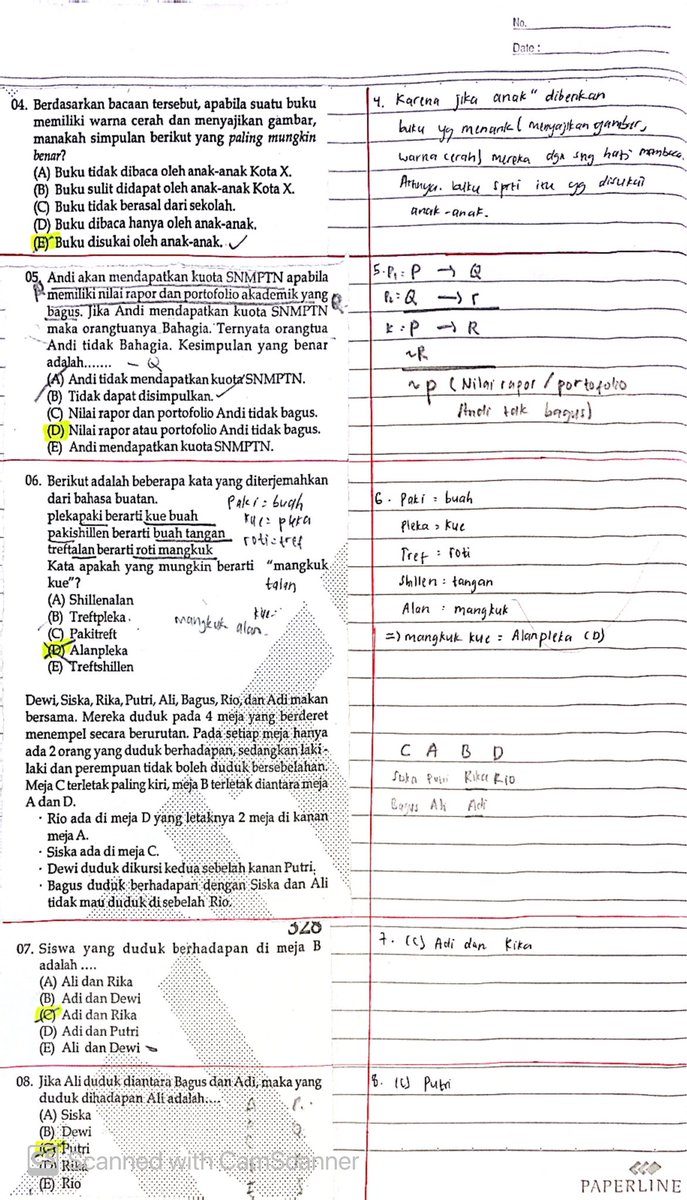 No.
Date :
04. Berdasarkan bacaan tersebut, apabila suatu buku
memiliki warna cerah dan menyajikan gambar,
manakah simpulan berikut yang paling mungkin
benar?
(A) Buku tidak dibaca oleh anak-anak Kota X.
(B) Buku sulit didapat oleh anak-anak Kota X.
(C) Buku tidak berasal dari sekolah.
(D) Buku dibaca hanya oleh anak-anak.
(E) Buku disukai oleh anak-anak.
4. Karena jika anak" diberikan
buku yg menarik (menyajikan gambar,
warna cerah) mereka dgn sng hati membaca.
Artinya. buku sprti itu yg disukai
anak-anak.
05. Andi akan mendapatkan kuota SNMPTN apabila
P memiliki nilai rapor dan portofolio akademik yang Q
bagus. Jika Andi mendapatkan kuota SNMPTN
maka orangtuanya Bahagia. Ternyata orangtua
Andi tidak Bahagia. Kesimpulan yang benar
adalah....... - Q
(A) Andi tidak mendapatkan kuota SNMPTN.
(B) Tidak dapat disimpulkan.
(C) Nilai rapor dan portofolio Andi tidak bagus.
(D) Nilai rapor atau portofolio Andi tidak bagus.
(E) Andi mendapatkan kuota SNMPTN.
5. P₁ : P → Q
P₂ = Q → r
k : P → R
~R
~P (Nilai rapor / portofolio
Andi tak bagus)
06. Berikut adalah beberapa kata yang diterjemahkan
dari bahasa buatan.
plekapaki berarti kue buah
pakishillen berarti buah tangan
treftalan berarti roti mangkuk
Kata apakah yang mungkin berarti "mangkuk
kue"?
(A) Shillenalan
(B) Treftpleka
(C) Pakitreft
(D) Alanpleka
(E) Treftshillen
Paki = buah
kue = pleka
roti = tref
talan
kue
mangkuk alan
6. Paki = buah
Pleka = kue
Tref = roti
Shillen : tangan
Alan : mangkuk
=> mangkuk kue = Alanpleka (D)
Dewi, Siska, Rika, Putri, Ali, Bagus, Rio, dan Adi makan
bersama. Mereka duduk pada 4 meja yang berderet
menempel secara berurutan. Pada setiap meja hanya
ada 2 orang yang duduk berhadapan, sedangkan laki-
laki dan perempuan tidak boleh duduk bersebelahan.
Meja C terletak paling kiri, meja B terletak diantara meja
A dan D.
· Rio ada di meja D yang letaknya 2 meja di kanan
meja A.
· Siska ada di meja C.
· Dewi duduk dikursi kedua sebelah kanan Putri.
· Bagus duduk berhadapan dengan Siska dan Ali
tidak mau duduk di sebelah Rio.
C A B D
Siska Putri Rika Rio
Bagus Ali Adi
328
07. Siswa yang duduk berhadapan di meja B
adalah ....
(A) Ali dan Rika
(B) Adi dan Dewi
(C) Adi dan Rika
(D) Adi dan Putri
(E) Ali dan Dewi
7. (C) Adi dan Rika
08. Jika Ali duduk diantara Bagus dan Adi, maka yang
duduk dihadapan Ali adalah....
(A) Siska
(B) Dewi
(C) Putri
(D) Rika
(E) Rio
8. (C) Putri
CS Scanned with CamScanner
PAPERLINE